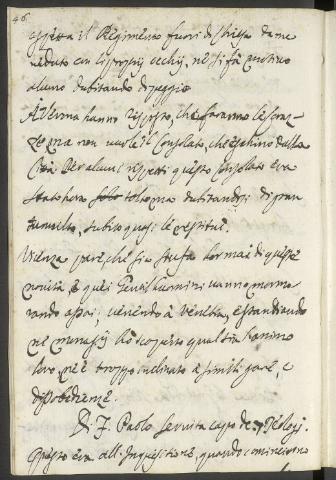 46.
il Regimento fuori di Chiesa da me
veduto con i proprij occhij, nè si fà motivo
alcuno dubitando di peggio
A Verona hanno risposto, che faranno le
ma non vuole il Consolato, che eschino dalla
Città. Per alcuni rispetti questo Consolato era
stato hora tolto, ma dubitandosi di gran
tumulto, subito quasi le restituì.
Vicenza pare, che sia stufa hor mai di queste
novità, e quei Gentilhuomini vanno mormo
rando assai, venendo à Venetia, e standiando
ne hò scoperto qual sia l'animo
loro, nè è troppo inclinato à simili gare, e
disobedienze.
Di F. Paolo Servita capo de Teologi.
Questo era all'Inquisitione, quando cominciorono